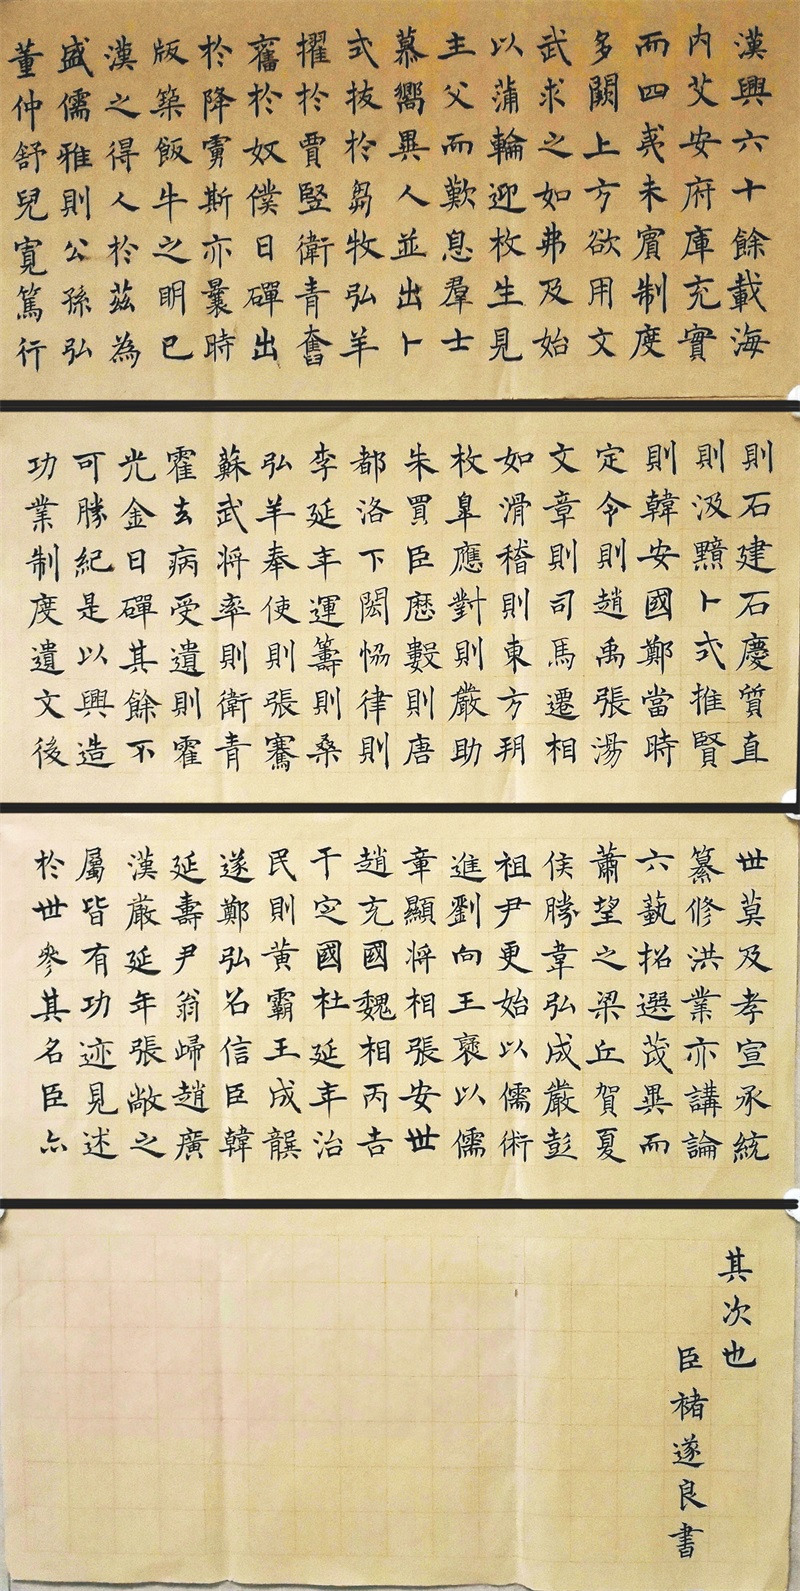 漢興六十餘載海
内艾安府庫充實
而四夷未賓制度
多闕上方欲用文
武求之如弗及始
以蒲輪迎枚生見
主父而歎息羣士
慕嚮異人並出卜
式拔於芻牧弘羊
擢於賈竪衛青奮
奮於奴僕日磾出
於降虜斯亦曩時
版築飯牛之明已
漢之得人於茲為
盛儒雅則公孫弘
董仲舒兒寬篤行
則石建石慶質直
則汲黯卜式推賢
則韓安國鄭當時
定令則趙禹張湯
文章則司馬遷相
如滑稽則東方朔
枚臯應對則嚴助
朱買臣歷數則唐
都洛下閎恊律則
李延年運籌則桑
弘羊奉使則張騫
蘇武将率則衛青
霍去病受遺則霍
光金日磾其餘不
可勝紀是以興造
功業制度遺文後
世莫及孝宣承統
纂修洪業亦講論
六藝招選茂異而
蕭望之梁丘賀夏
侯勝韋弘成嚴彭
祖尹更始以儒術
進劉向王褒以儒
章顯将相張安世
趙充國魏相丙吉
于定國杜延年治
民則黄霸王成龔
遂鄭弘召信臣韓
延壽尹翁歸趙廣
漢嚴延年張敞之
屬皆有功迹見述
於世參其名臣亦
其次也
臣褚遂良書